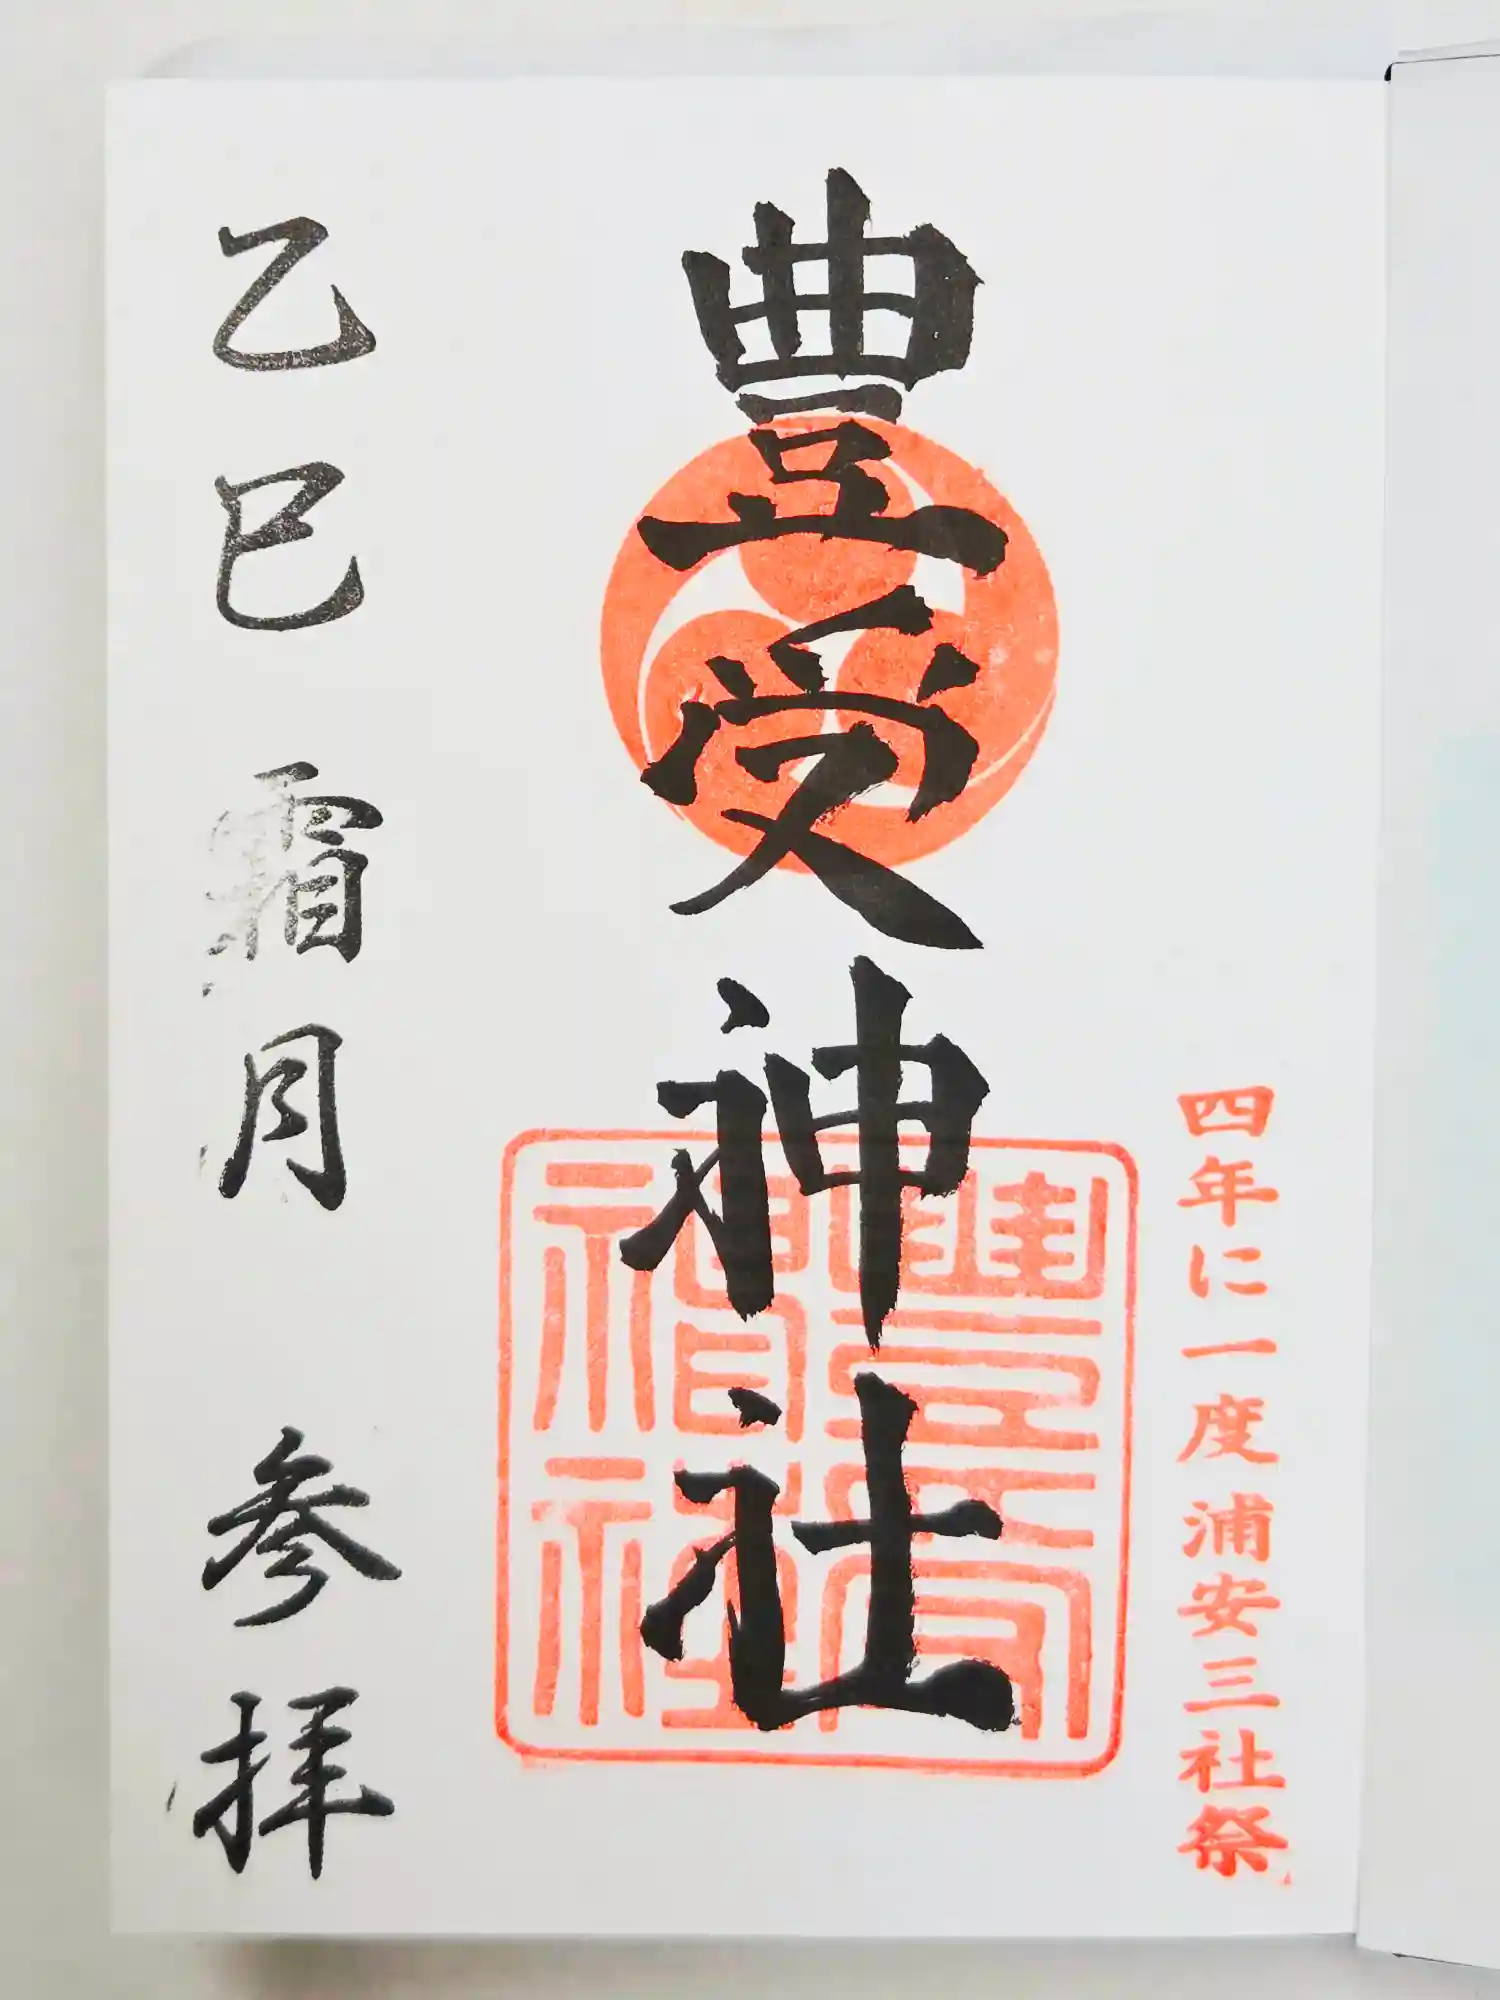 四年に一度浦安三社祭
豊受神社
豊受神社
乙巳 霜月 参拝